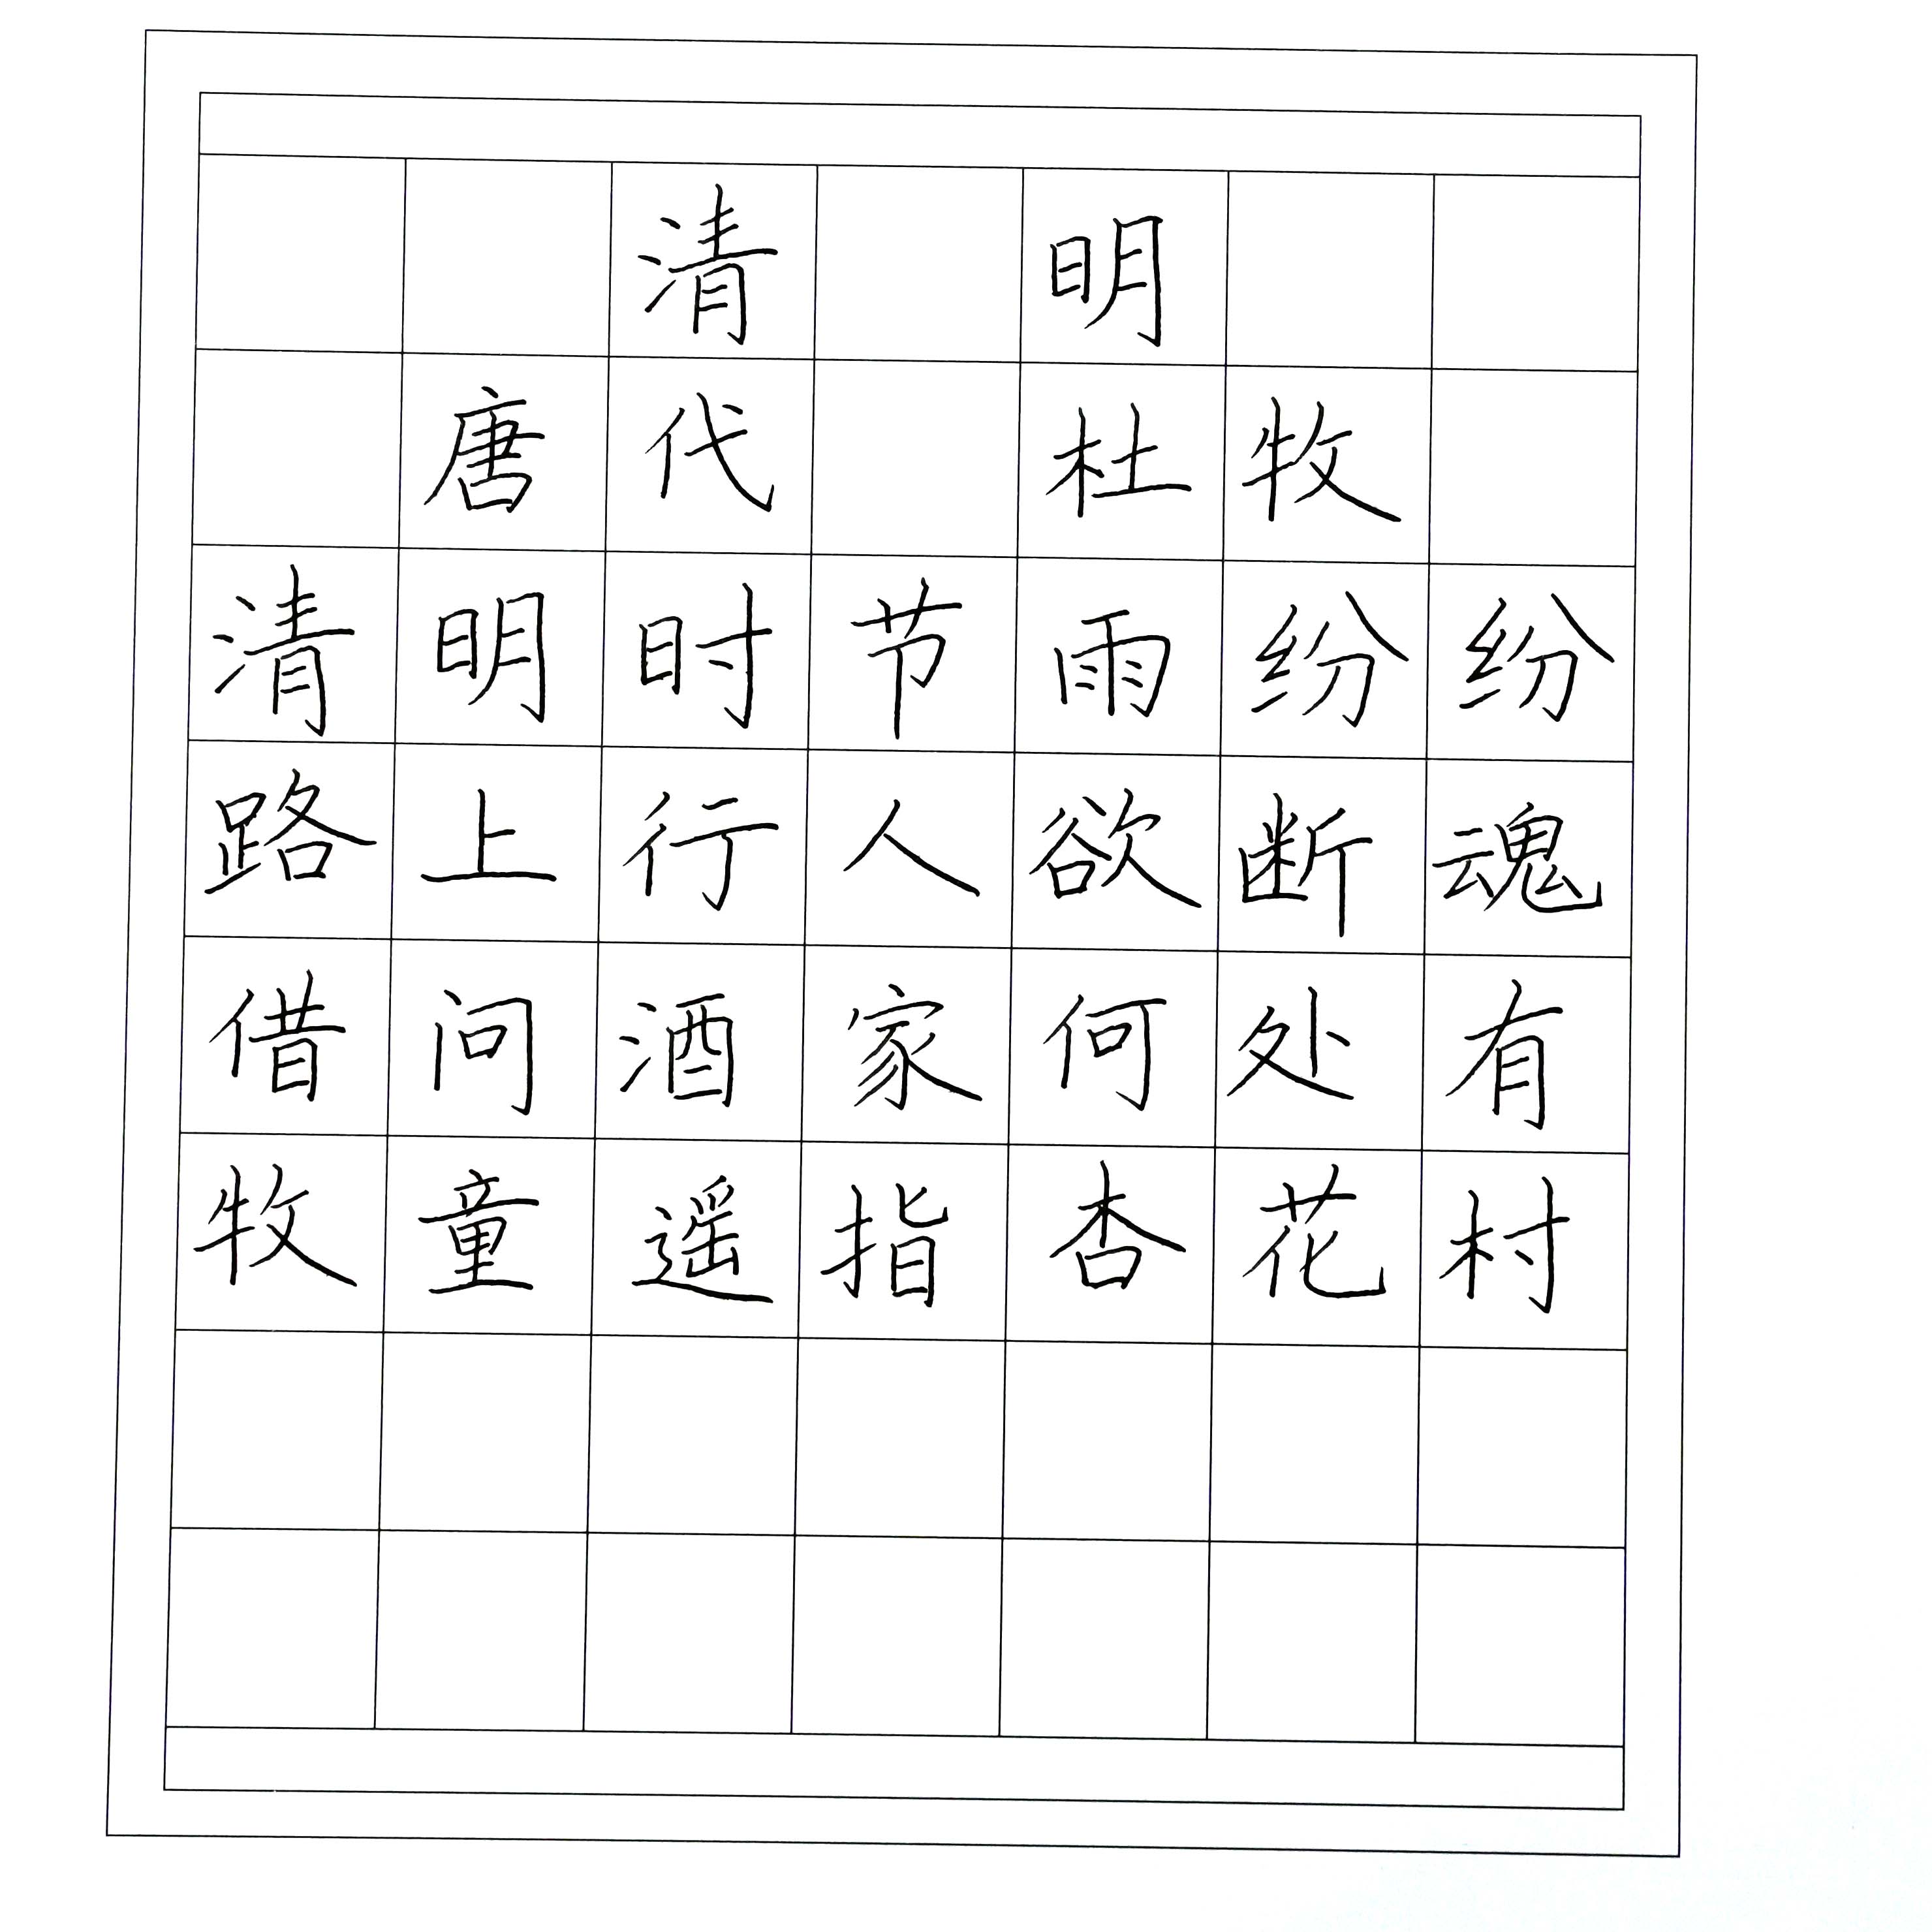 清明
唐代 杜牧
清明时节雨纷纷
路上行人欲断魂
借问酒家何处有
牧童遥指杏花村